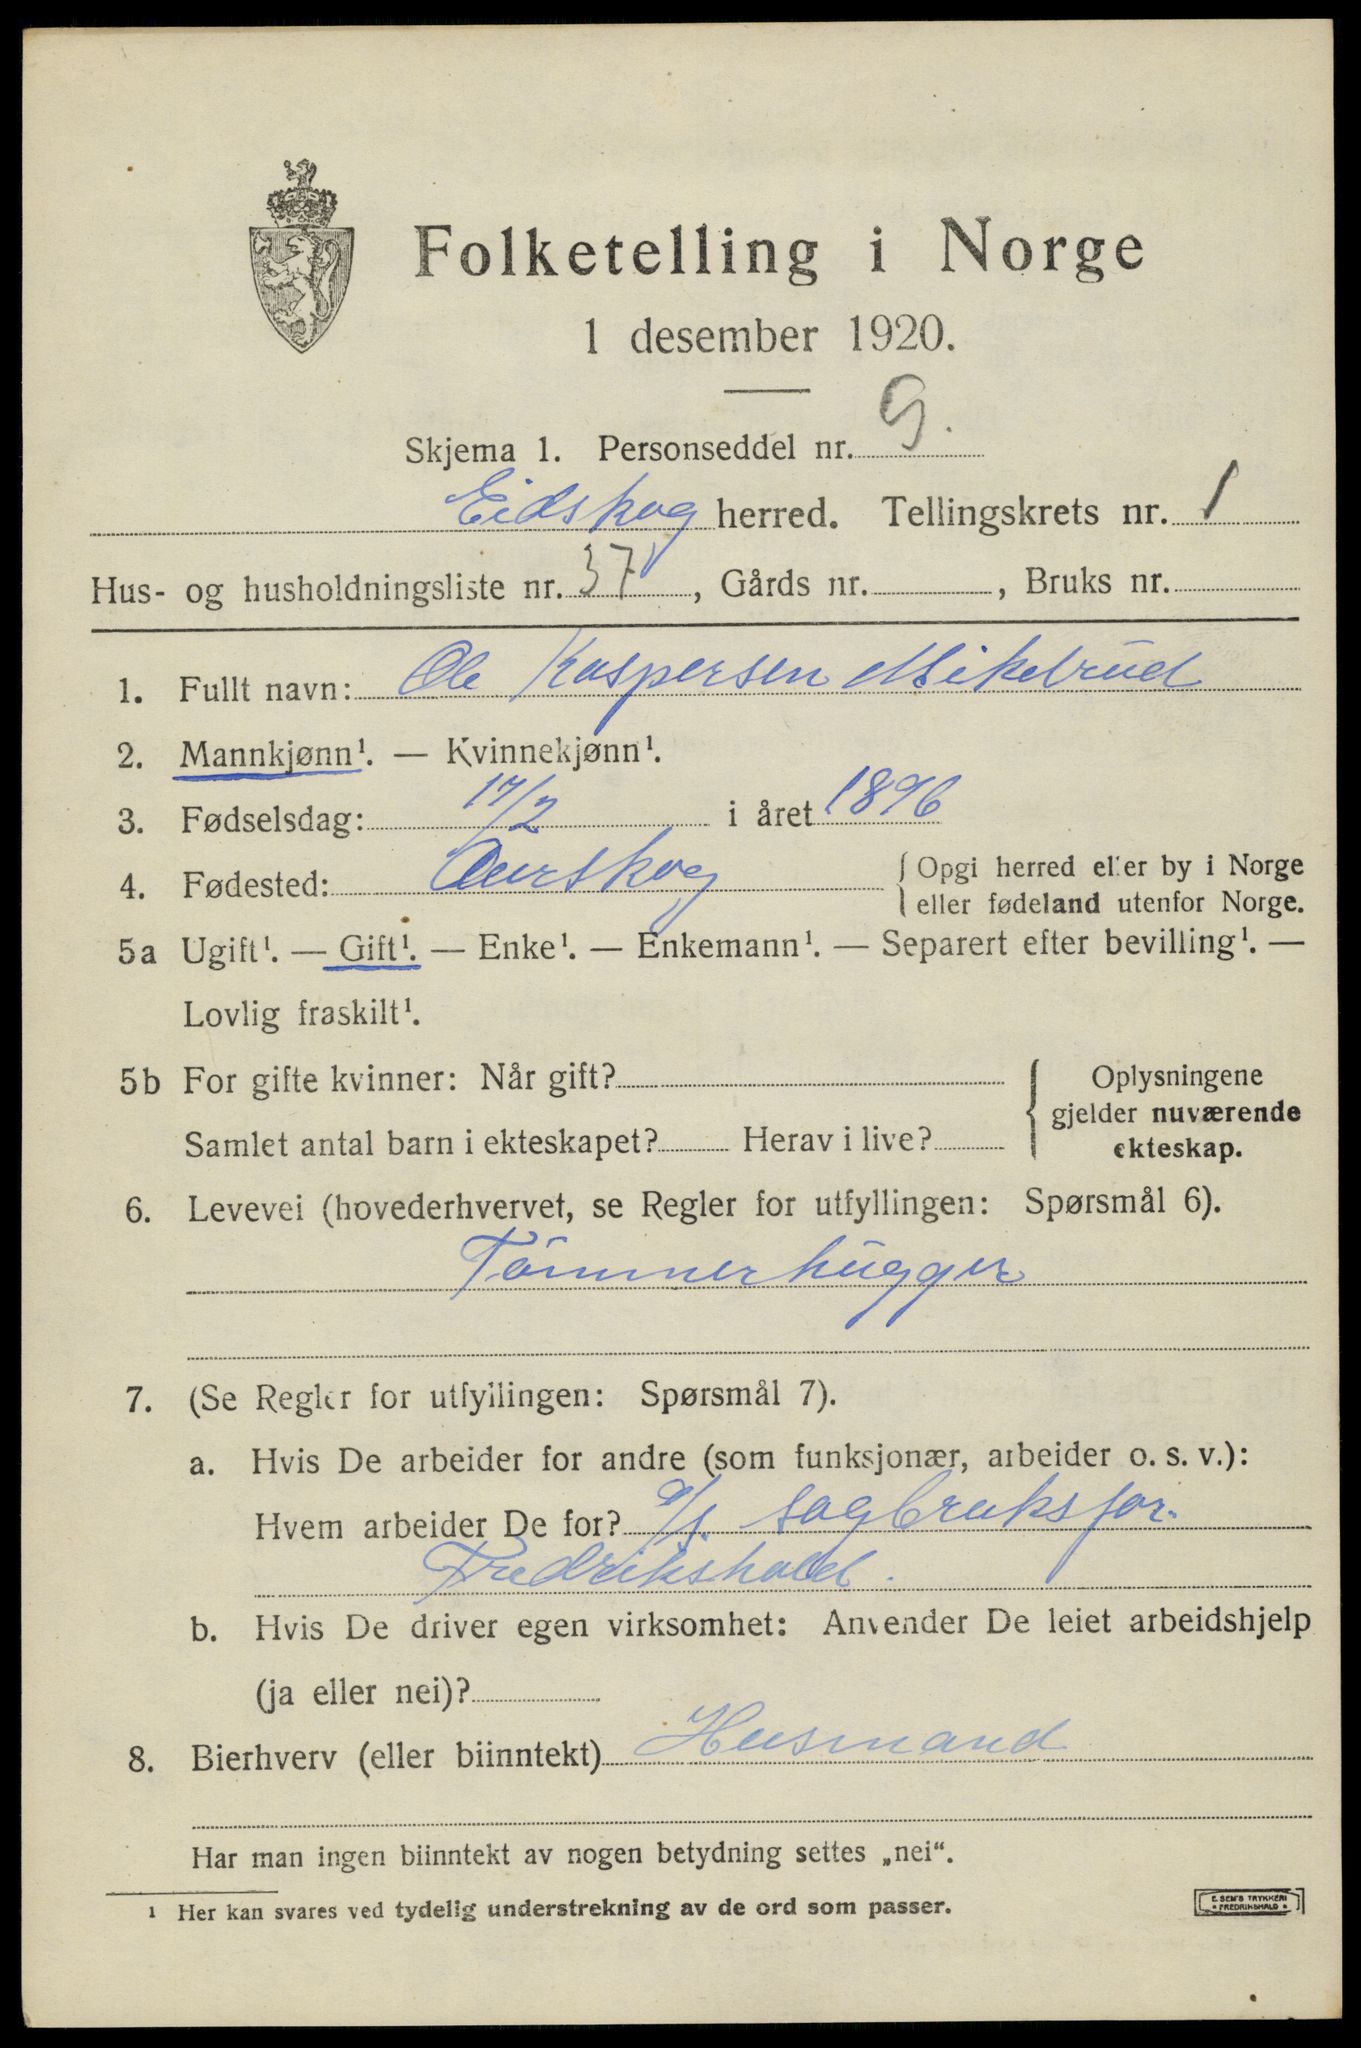 Folketelling i Norge
1 desember 1920.
Skjema 1. Personseddel nr. 9.
Eidskog herred. Tellingskrets nr. 1
Hus- og husholdningsliste nr. 37, Gårds nr. , Bruks nr.
1. Fullt navn: Ole Kaspersen Mikelrud
2. Mannkjønn¹. — Kvinnekjønn¹.
3. Fødselsdag: 17/2 i året 1896
4. Fødested: Aurskog { Opgi herred eller by i Norge
eller fødeland utenfor Norge.
5a Ugift¹. — Gift¹. — Enke¹. — Enkemann¹. — Separert efter bevilling¹. —
Lovlig fraskilt¹.
5b For gifte kvinner: Når gift? { Oplysningene
gjelder nuværende
Samlet antal barn i ekteskapet? Herav i live?
ekteskap.
6. Levevei (hovederhvervet, se Regler for utfyllingen: Spørsmål 6).
Tömmerhugger
7. (Se Regler for utfyllingen: Spørsmål 7).
a. Hvis De arbeider for andre (som funksjonær, arbeider o. s. v.):
Hvem arbeider De for? sagbruksfor.
Fredrikshald.
b. Hvis De driver egen virksomhet: Anvender De leiet arbeidshjelp
(ja eller nei)?
8. Bierhverv (eller biinntekt) Husmand
Har man ingen biinntekt av nogen betydning settes „nei“.
1 Her kan svares ved tydelig understrekning av de ord som passer.
E. SEM'S TRYKKERI
* FREDRIKSHALD *